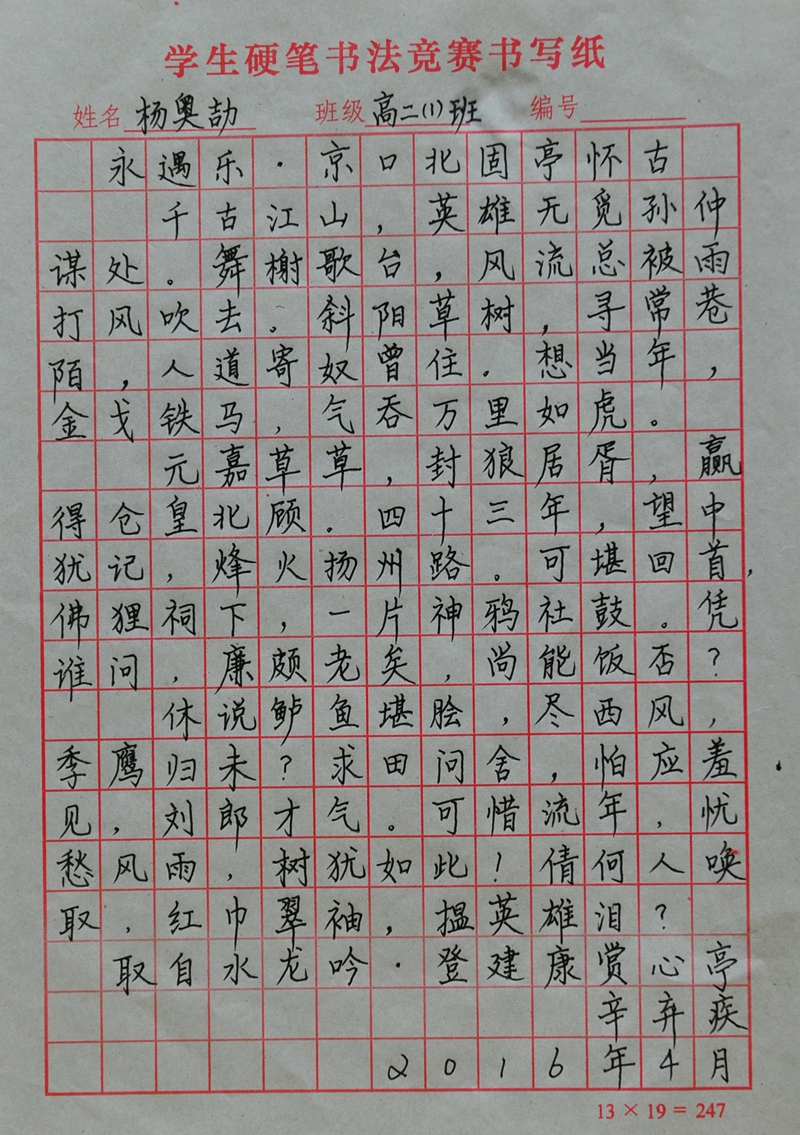 学生硬笔书法竞赛书写纸
姓名 杨奥劼 班级 高二(1)班 编号
永遇乐·京口北固亭怀古
千古江山，英雄无觅孙仲
谋处。舞榭歌台，风流总被雨
打风吹去。斜阳草树，寻常巷
陌，人道寄奴曾住。想当年，
金戈铁马，气吞万里如虎。
元嘉草草，封狼居胥，赢
得仓皇北顾。四十三年，望中
犹记，烽火扬州路。可堪回首，
佛狸祠下，一片神鸦社鼓。凭
谁问，廉颇老矣，尚能饭否？
休说鲈鱼堪脍，尽西风，
季鹰归未？求田问舍，怕应羞
见，刘郎才气。可惜流年，忧
愁风雨，树犹如此！倩何人唤
取，红巾翠袖，揾英雄泪？
取自水龙吟·登建康赏心亭
辛弃疾
2016年4月
13×19=247